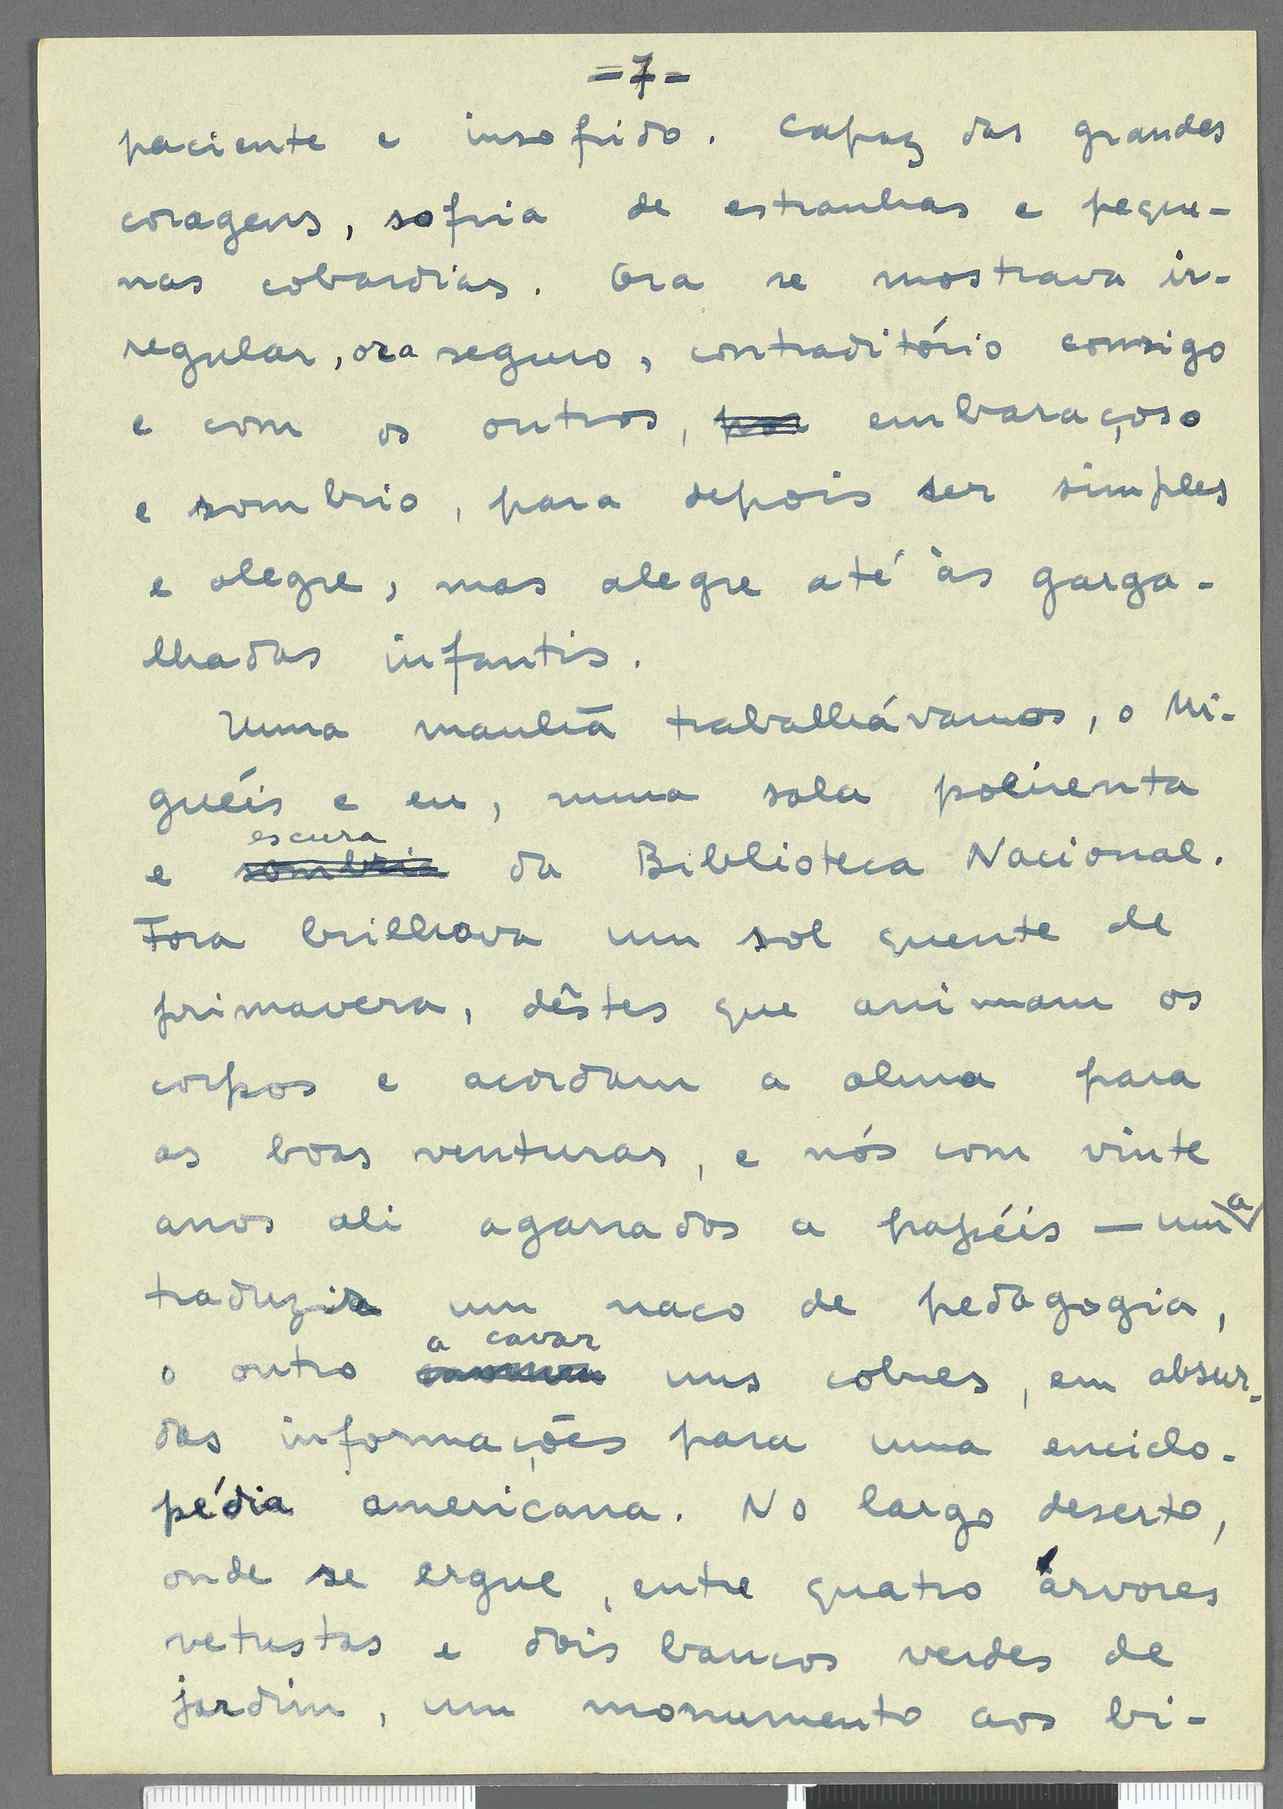 =7=
paciente e insofrido. Capaz das grandes
coragens, sofria de estranhas e peque-
nas cobardias. Ora se mostrava ir-
regular, ora seguro, contraditório consigo
e com os outros, embaraçoso
e sombrio, para depois ser simples
e alegre, mas alegre até às garga-
lhadas infantis.
Numa manhã trabalhávamos, o Mi-
guéis e eu, numa sala poeirenta
escura
e sombria da Biblioteca Nacional.
Fora brilhava um sol quente de
primavera, dêstes que animam os
corpos e acordam a alma para
as boas venturas, e nós com vinte
anos ali agarrados a papéis — um a
traduzir um naco de pedagogia,
a cavar
o outro uns cobres, em absur-
das informações para uma enciclo-
pédia americana. No largo deserto,
onde se ergue, entre quatro árvores
vetustas e dois bancos verdes de
jardim, um monumento aos bi-